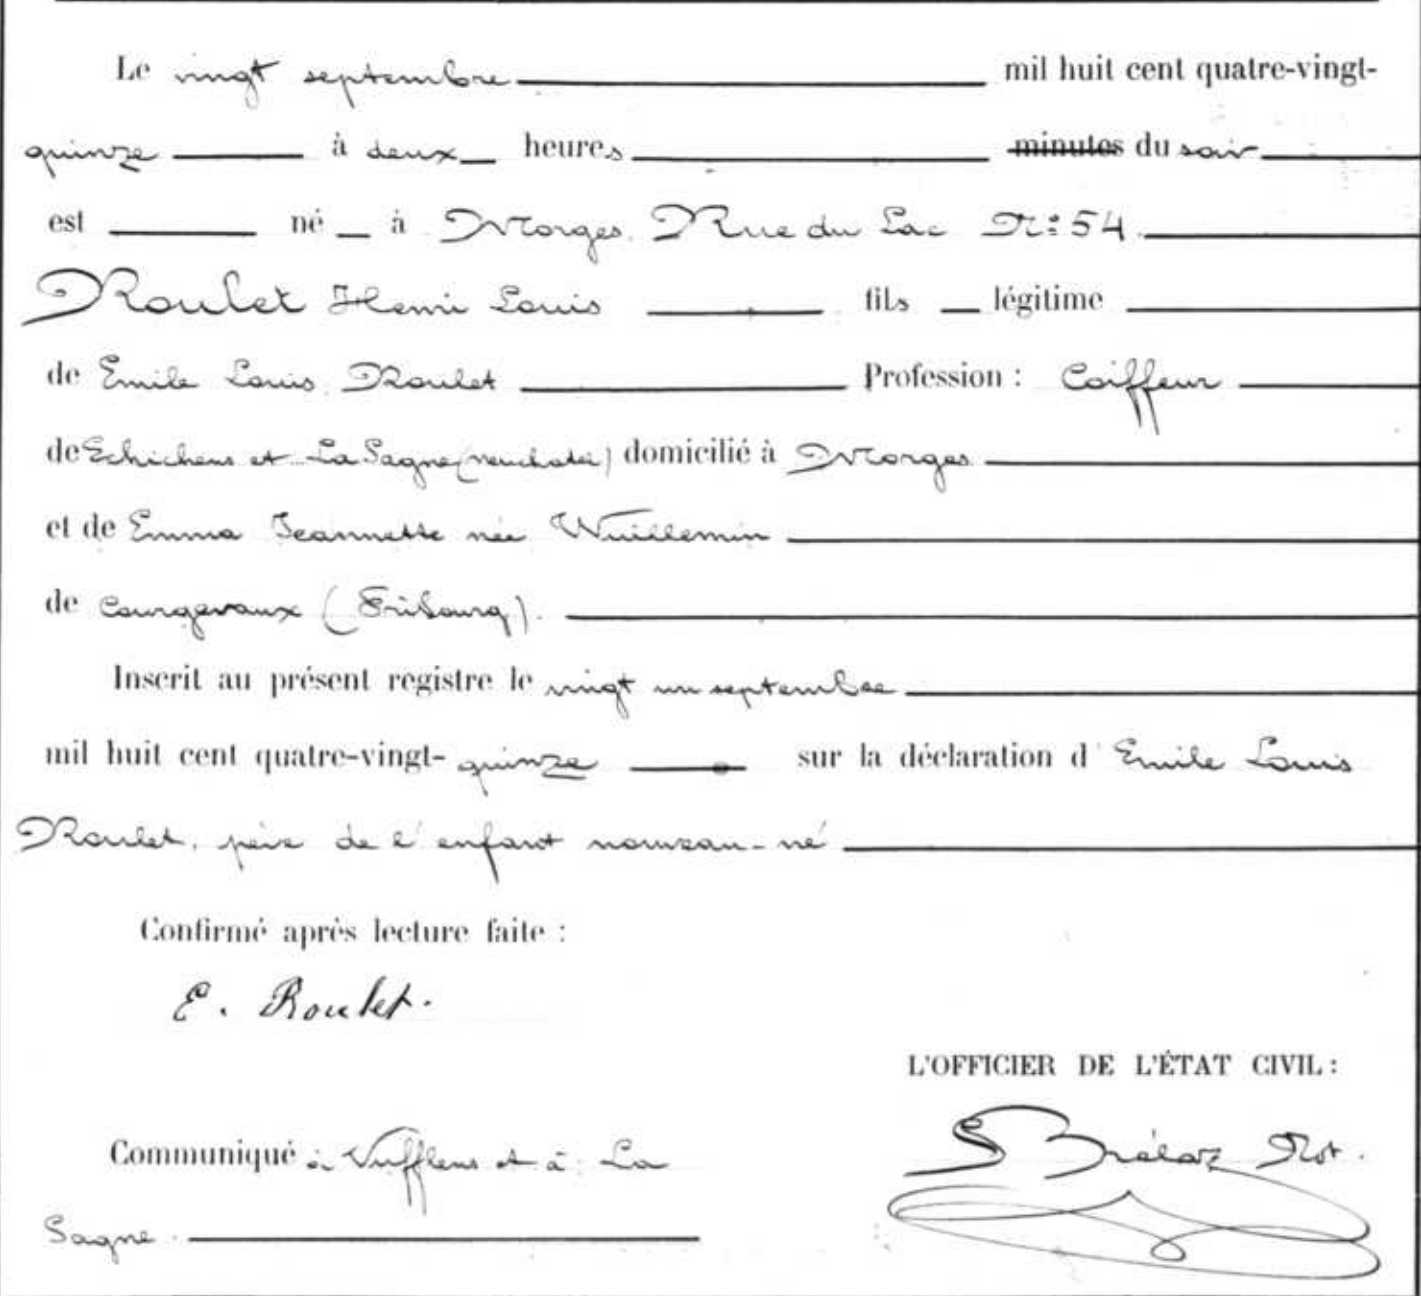 Le vingt septembre mil huit cent quatre-vingt-
quinze à deux heures minutes du soir
est né à Morges. Rue du Lac No: 54.
Roulet Henri Louis fils légitime
de Emile Louis Roulet Profession : Coiffeur
de Echichens et La Sagne (neuchatel) domicilié à Morges
et de Emma Jeannette née Wuillemin
de Courgevaux (Fribourg).
Inscrit au présent registre le vingt un septembre
mil huit cent quatre-vingt-quinze sur la déclaration d' Emile Louis
Roulet, père de l'enfant nouveau-né
Confirmé après lecture faite :
E. Roulet.
L'OFFICIER DE L'ÉTAT CIVIL :
Communiqué à Vufflens et à La
S Brélaz Not.
Sagne.